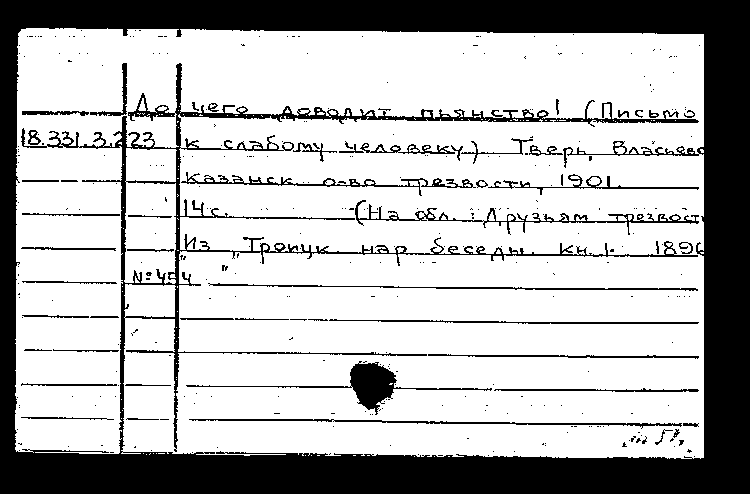 До чего доводит пьянство! (Письмо
18.331.3.223 к слабому человеку) Тверь, Власьево
Казанск о-во трезвости, 1901.
14с. (На обл.: Друзьям трезвости
Из „Троицк нар беседы. кн. 1. 1896
№ 454 "